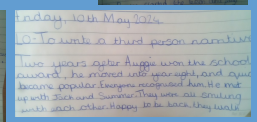 Friday, 10th May 2024
LO-To write a third person narrative
Two years after Auggie won the school
award, he moved into year eight, and
became popular. Everyone recognised him. He met
up with Jack and Summer. They were all smiling
with each other. Happy to be back, they